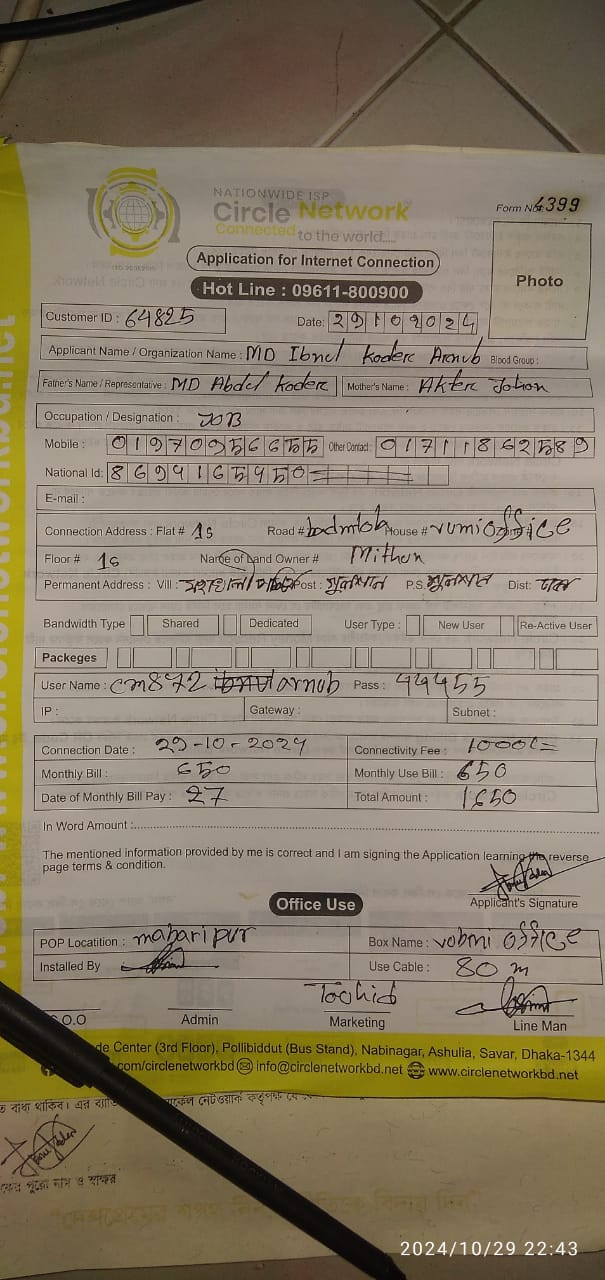 NATIONWIDE ISP
Circle Network
Connected to the world.....
Form No: 4399
Application for Internet Connection
Photo
Hot Line : 09611-800900
Customer ID : 64825
Date: 29102024
Applicant Name / Organization Name : MD Ibnel Koderc Arnub Blood Group :
Father's Name / Representative : MD Abdel Koderc Mother's Name : Akter Jotion
Occupation / Designation : JOB
Mobile : 01970956655 Other Contact : 01711862589
National Id: 8694165950
E-mail :
Connection Address : Flat # 1s Road # badmtola House # rumi office
Floor # 1s Name of Land Owner # Mithun
Permanent Address : Vill : Post : গুলশান P.S. গুলশান Dist: ঢাকা
Bandwidth Type Shared Dedicated User Type : New User Re-Active User
Packeges
User Name : cm872 arnub Pass : 44455
IP : Gateway : Subnet :
Connection Date : 29-10-2024 Connectivity Fee : 1000/=
Monthly Bill : 650 Monthly Use Bill : 650
Date of Monthly Bill Pay : 27 Total Amount : 1650
In Word Amount :
The mentioned information provided by me is correct and I am signing the Application learning the reverse
page terms & condition.
Applicant's Signature
Office Use
POP Locatition : maharipur Box Name : robmi অফিস
Installed By Use Cable : 80 m
Toohid
S.O.O Admin Marketing Line Man
de Center (3rd Floor), Pollibiddut (Bus Stand), Nabinagar, Ashulia, Savar, Dhaka-1344
.com/circlenetworkbd info@circlenetworkbd.net www.circlenetworkbd.net
2024/10/29 22:43